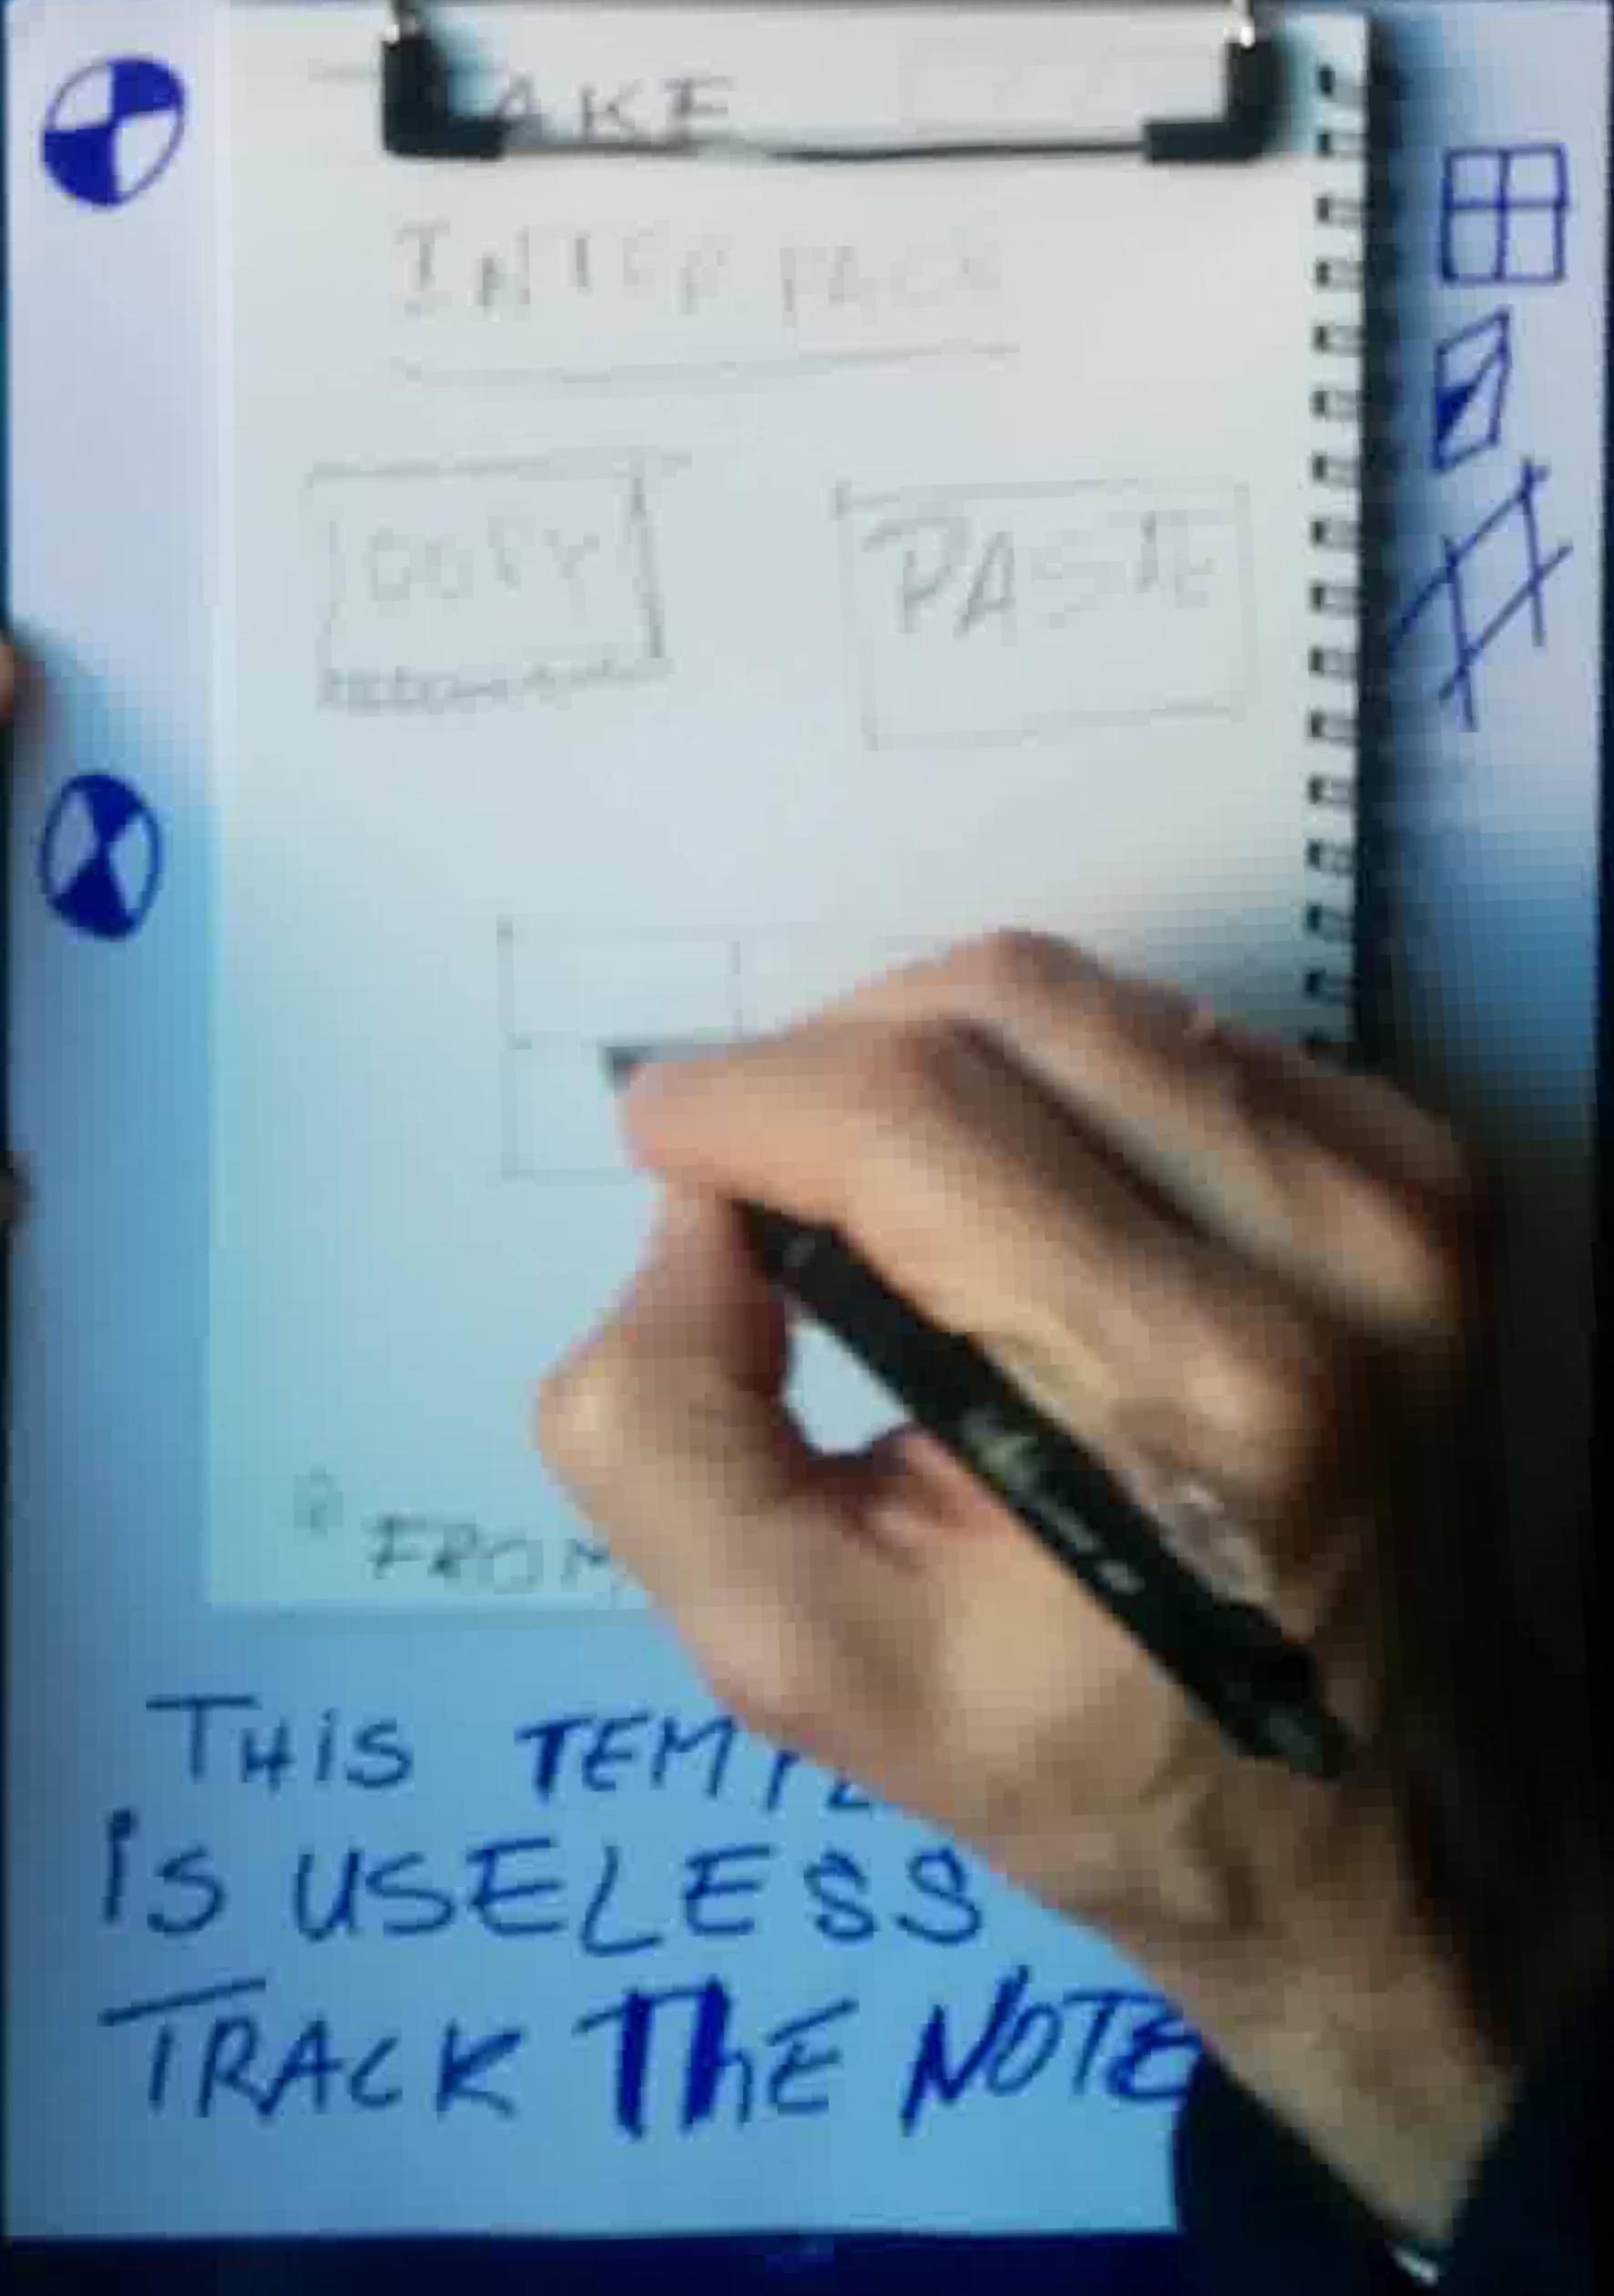 AKE
INTERFACE
COPY PASTE
FROM
THiS TEMPL
iS USELESS
TRACK ThE NOTE